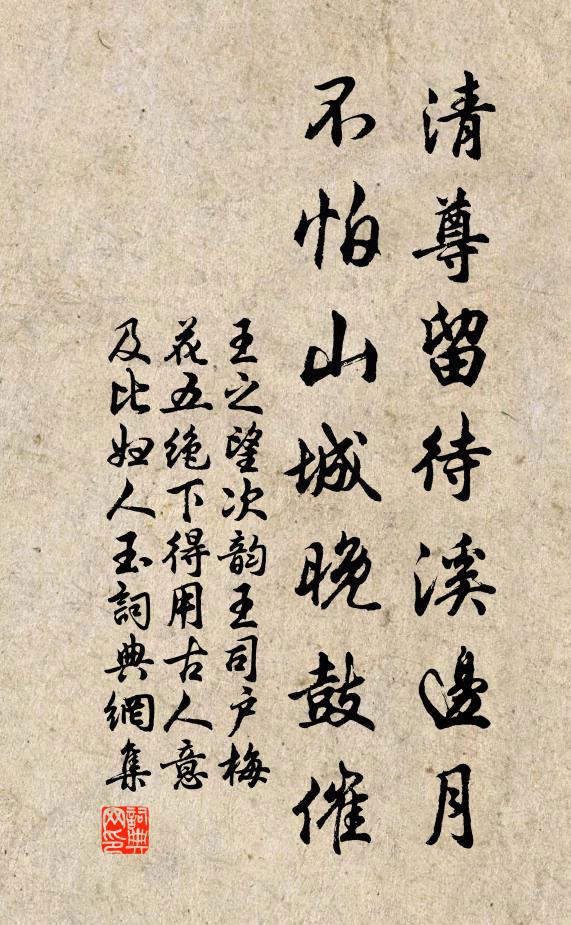 清尊留待溪邊月
不怕山城晚鼓催
王之望次韵王司户梅
花五絶下得用古人意
及比妲人玉詞典網集
詞典网印